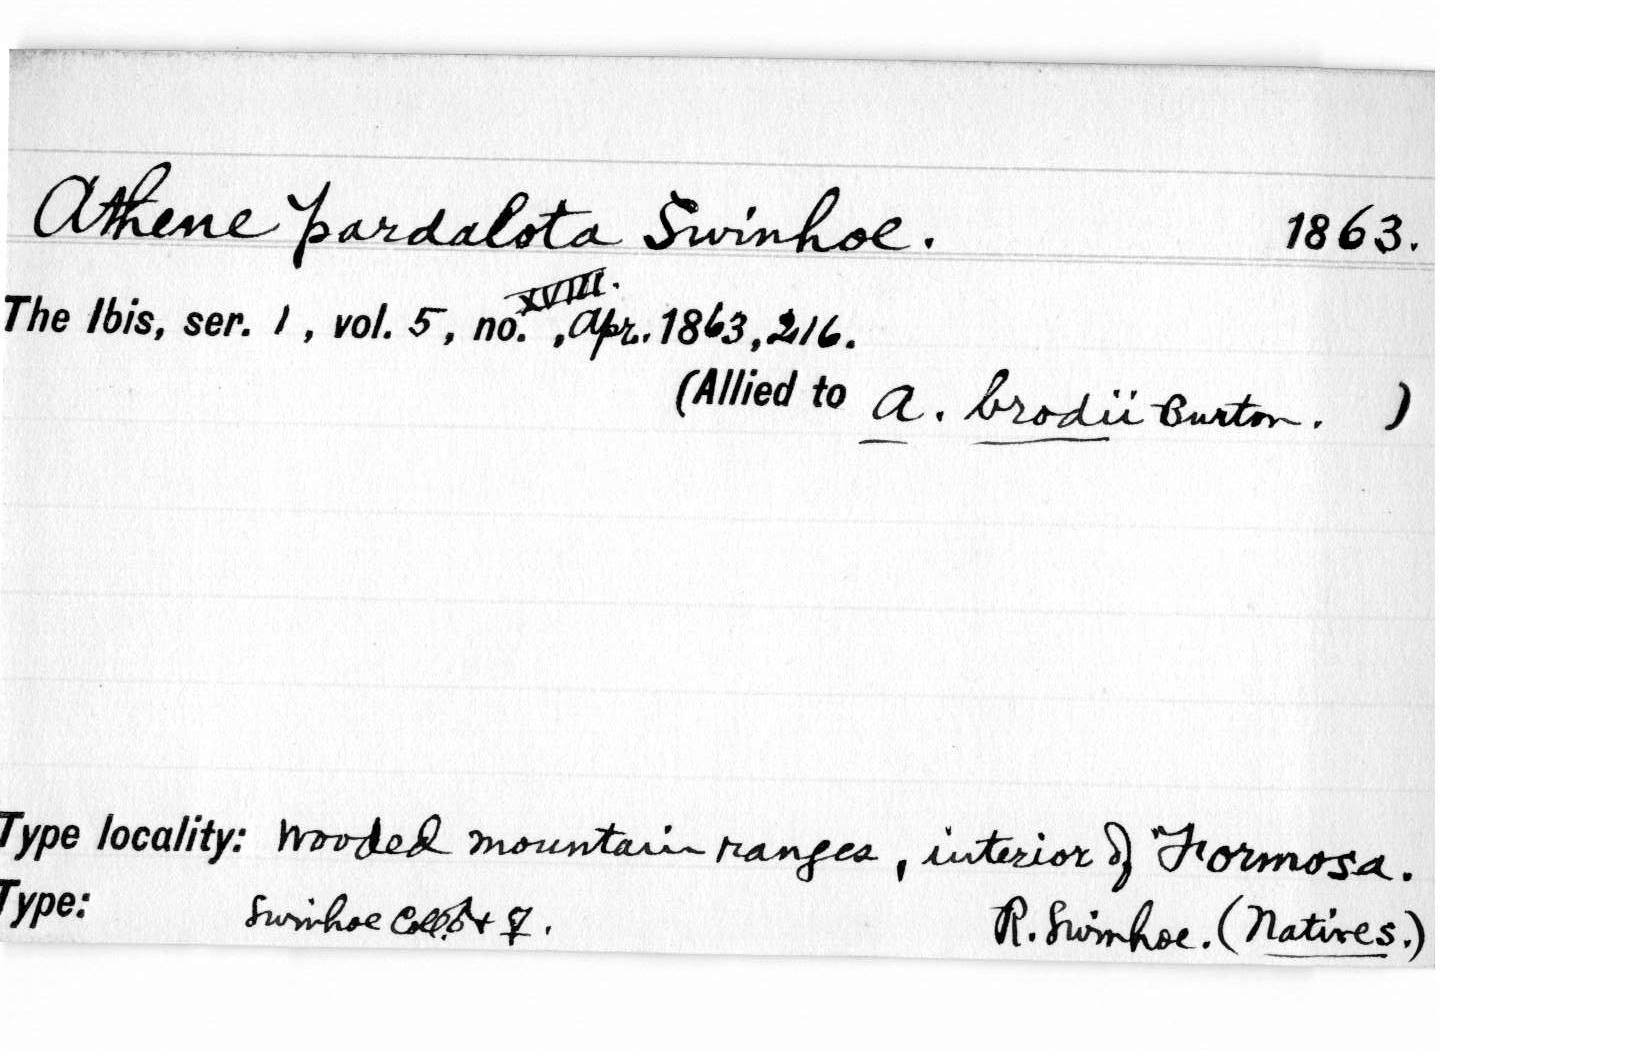 Athene pardalota Swinhoe. 1863.
The Ibis, ser. 1, vol. 5, no. XVIII., Apr. 1863, 216.
(Allied to A. brodii Burton. )
Type locality: Wooded mountain ranges, interior of Formosa.
Type: Swinhoe Coll. ♂ + ♀. R. Swinhoe. (Natives.)